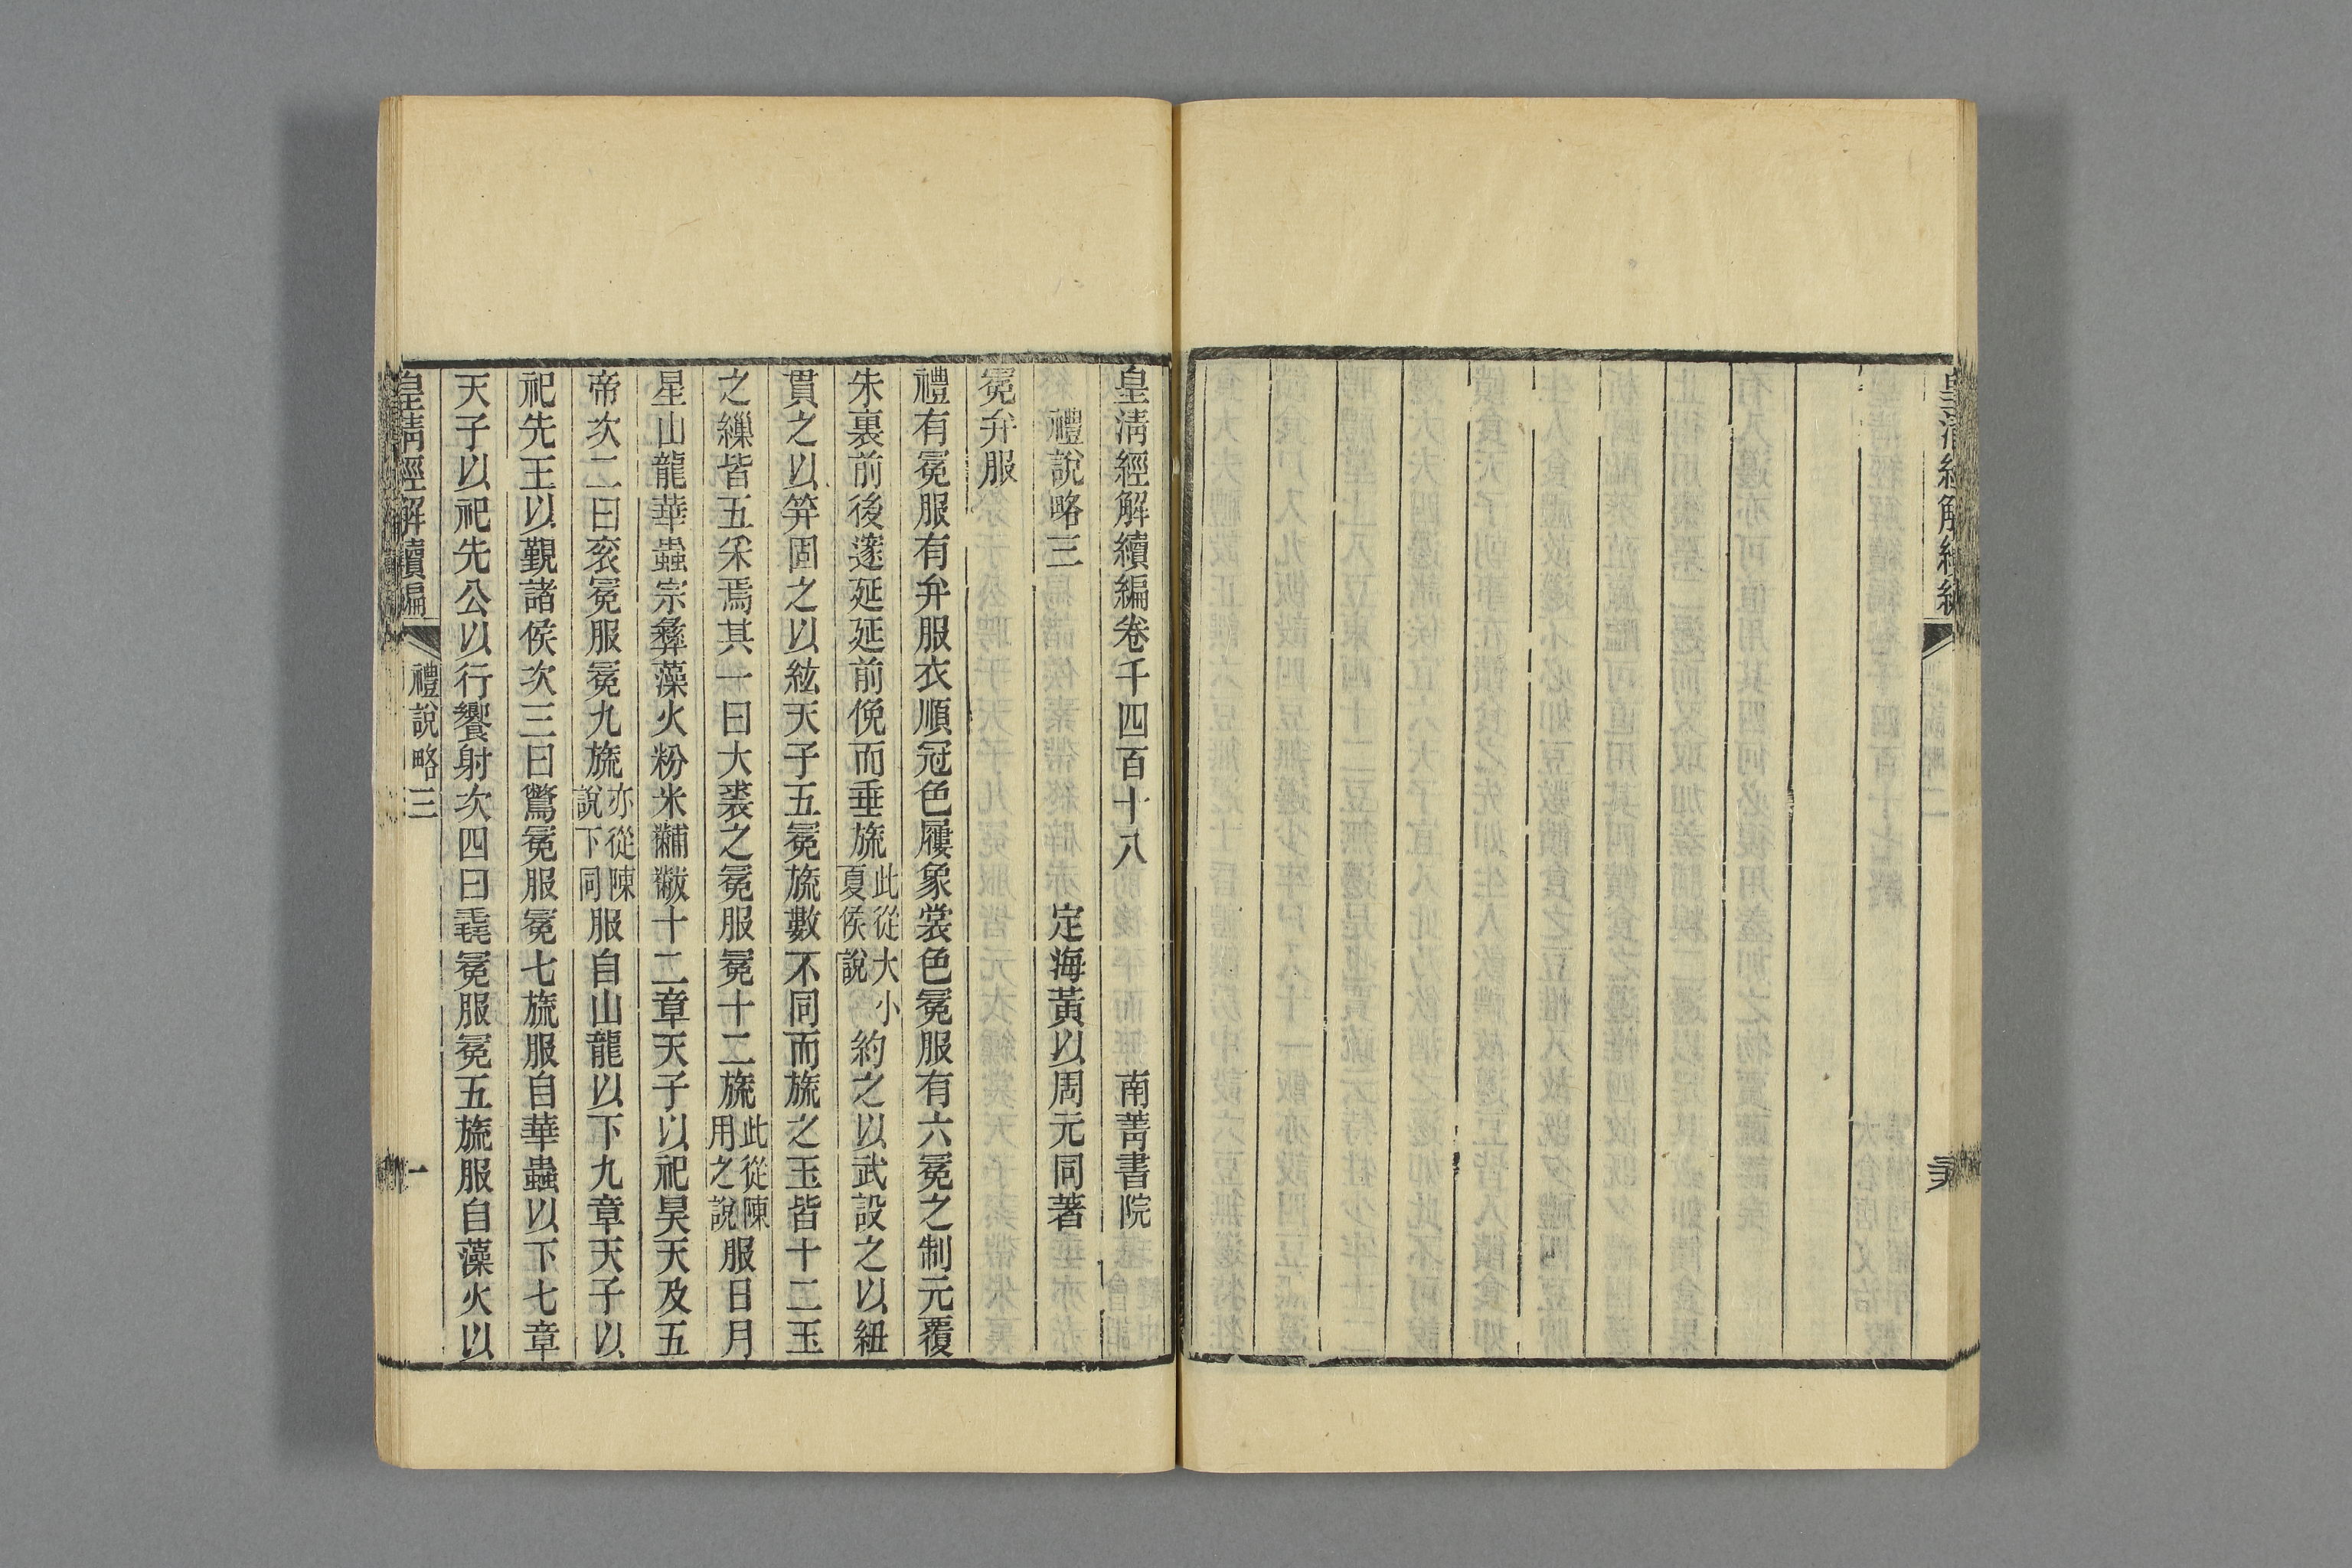 皇清經解續編卷千四百十八　南菁書院
禮說略三　定海黃以周元同著
冕弁服
禮有冕服有弁服衣順冠色屨象裳色冕服有六冕之制元覆
朱裏前後邃延延前俛而垂旒此從大小夏侯說約之以武設之以紐
貫之以笄固之以紘天子五冕旒數不同而旒之玉皆十二玉
之繅皆五采焉其一曰大裘之冕服冕十二旒此從陳用之說服日月
星山龍華蟲宗彝藻火粉米黼黻十二章天子以祀昊天及五
帝次二曰衮冕服冕九旒亦從陳說下同服自山龍以下九章天子以
祀先王以覲諸侯次三曰鷩冕服冕七旒服自華蟲以下七章
天子以祀先公以行饗射次四曰毳冕服冕五旒服自藻火以
皇清經解續編　禮說略三　一